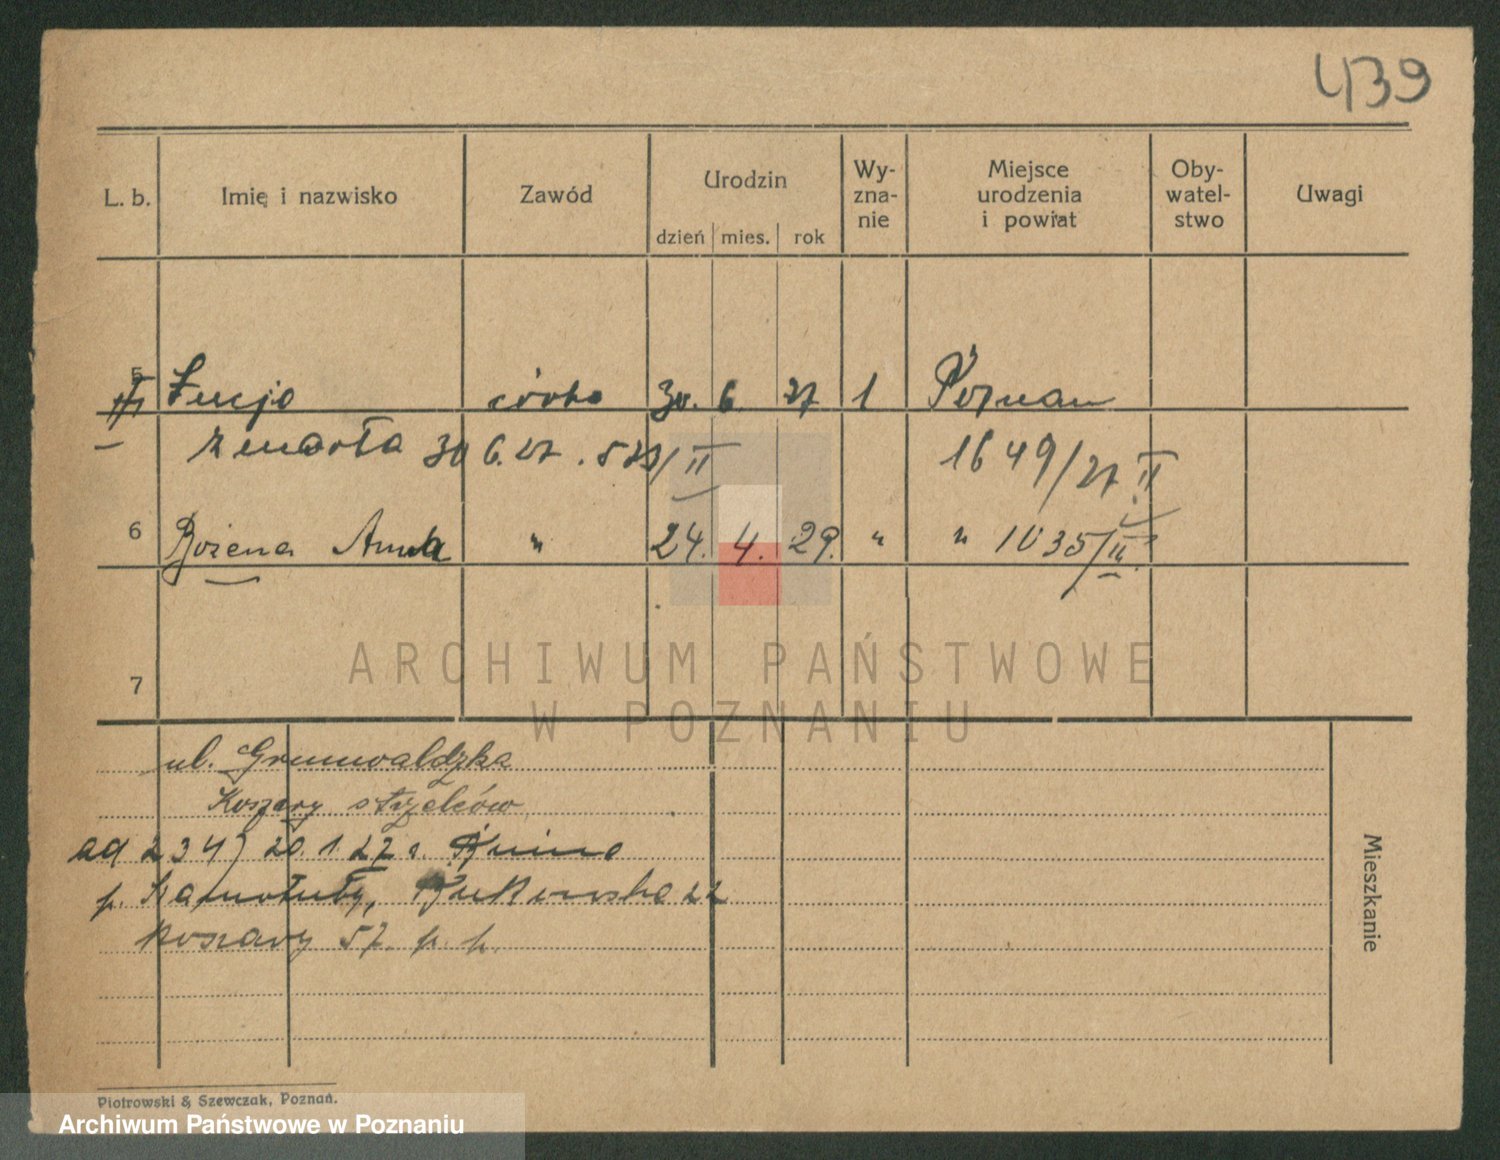 439
L. b. Imię i nazwisko Zawód Urodzin dzień mies. rok Wy-zna-nie Miejsce urodzenia i powiat Oby-watel-stwo Uwagi
5 Łucja córka 30. 6. 27 1 Poznań
zmarła 30 6. 27. 1649/27 II
6 Bożena Anna " 24. 4. 29. " " 1035/II
7
ARCHIWUM PAŃSTWOWE
W POZNANIU
ul. Grunwaldzka
Koszary strzelców
ad 234) 20. 1. 27 r.
p. 22
koszary 57. p. p.
Mieszkanie
Piotrowski & Szewczak, Poznań.
Archiwum Państwowe w Poznaniu